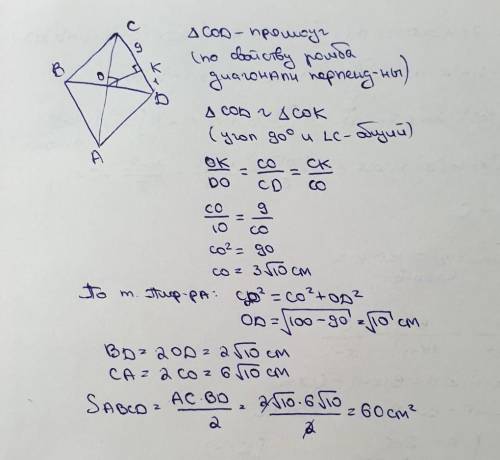 C
9
B
O
K
1
D
A
△COD - прямоуг
(по свойству ромба
диагонали перпенд-ны)
△COD ~ △COK
(угол 90° и ∠C - общий)
OK/DO = CO/CD = CK/CO
CO/10 = 9/CO
CO² = 90
CO = 3√10 см
По т. Пиф-ра: CD² = CO² + OD²
OD = √100 - 90 = √10 см
BD = 2OD = 2√10 см
CA = 2CO = 6√10 см
SABCD = AC·BD/2 = 2√10·6√10/2 = 60 см²